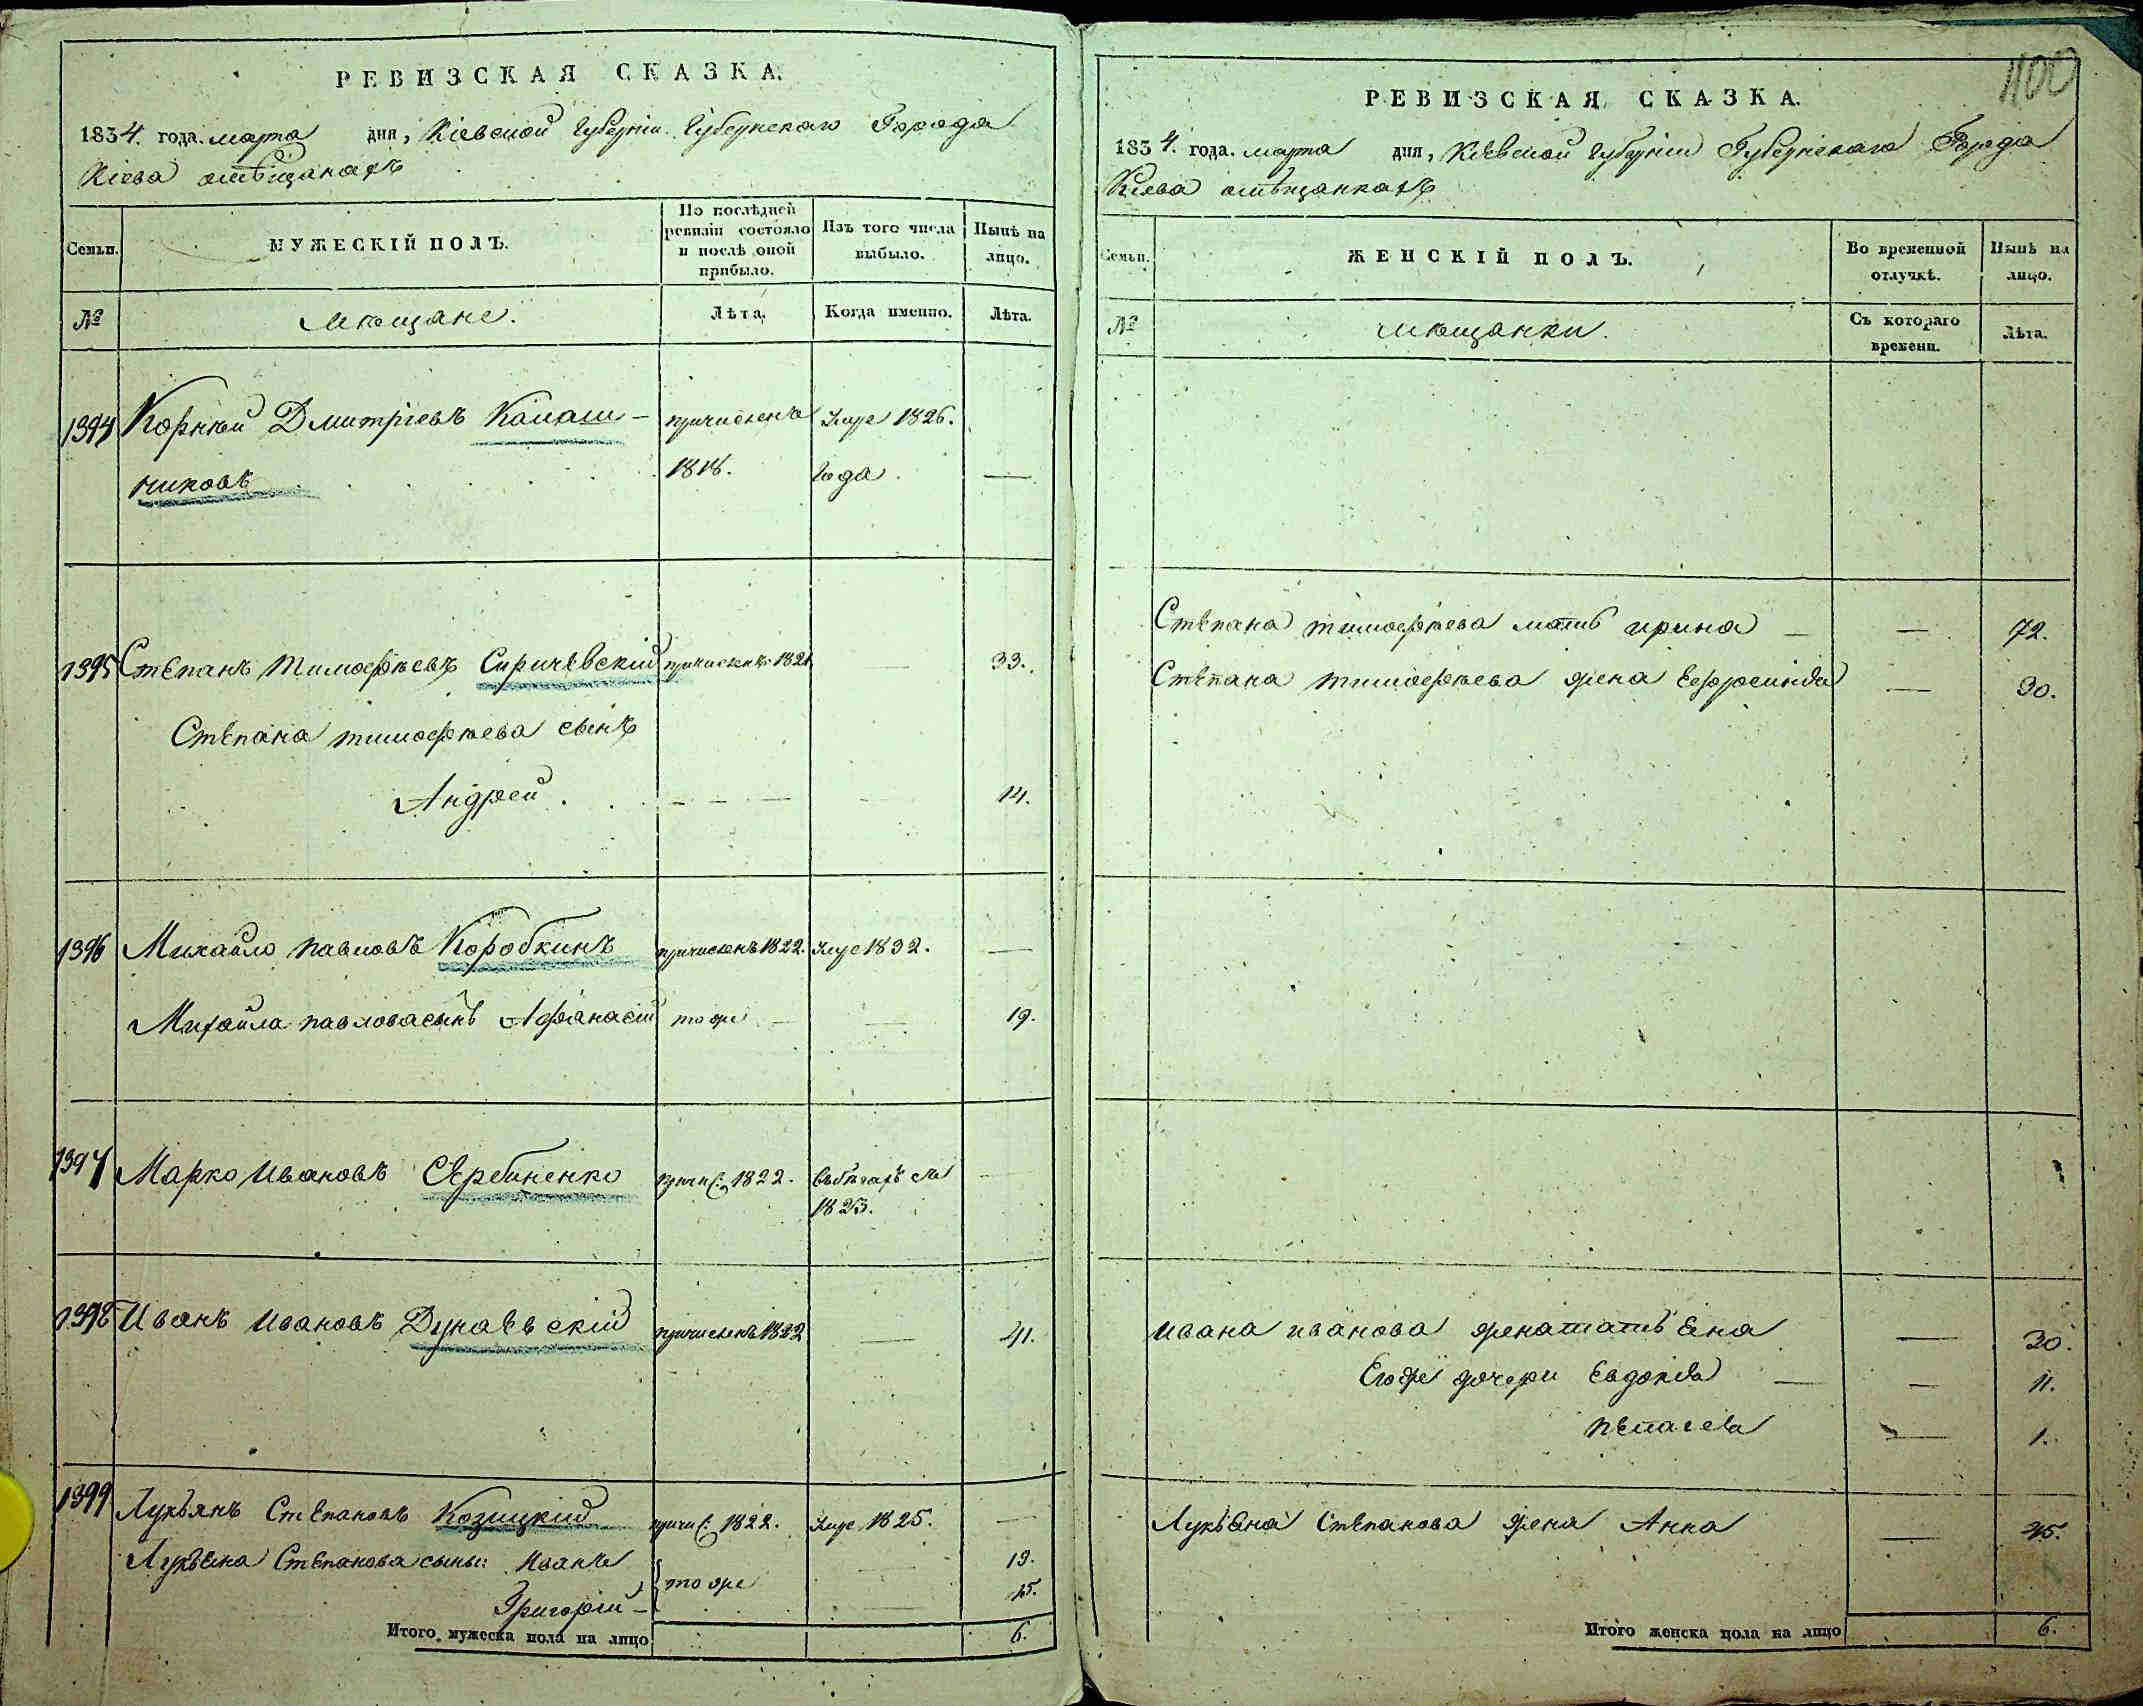 РЕВИЗСКАЯ СКАЗКА.
1834. года. марта дня, Кіевской Губерніи Губернскаго Города
Кіева омѣщанахъ
Семьи.
МУЖЕСКІЙ ПОЛЪ.
По послѣдней ревизіи состояло и послѣ оной прибыло.
Изъ того числа выбыло.
Нынѣ на лицо.
№
Мѣщане.
Лѣта.
Когда именно.
Лѣта.
1394 Корнѣй Дмитріевъ причисленъ 1826.
никовъ 1818. Года —
1395 Стѣпанъ тимофѣевъ Сиричѣвскій причисленъ 1821 — 33.
Стѣпана тимофѣева сынъ
Андрей — — — — 14.
1396 Михайло павловъ Коробкинъ причисленъ 1822. 1832. —
Михайла павлова сынъ Афанасій тоже — — 19.
1397 Марко Ивановъ Сѣрбиненко причис: 1822. въбѣгахъ съ —
1823.
1398 Иванъ Ивановъ Дунаѣвскій причисленъ 1822 — 41.
1399 Лукьянъ Стѣпановъ Козицкій причис: 1822. 1825. —
Лукьяна Стѣпанова сыны: Иванъ 19.
тоже
Григорій — — 15.
Итого мужеска пола на лицо 6.
1400
РЕВИЗСКАЯ СКАЗКА.
1834. года. марта дня, Кіевской Губерніи Губернскаго Города
Кіева омѣщанкахъ
Семьи.
ЖЕНСКІЙ ПОЛЪ.
Во временной отлучкѣ.
Нынѣ на лицо.
№
Мѣщанки.
Съ котораго времени.
Лѣта.
Стѣпана тимофѣева мать ирина — — 72.
Стѣпана тимофѣева жена Ефросинія — 30.
ивана иванова жена татьѣна — 30.
Егоже дочери Евдокія — — 11.
пѣлагѣя — 1.
Лукьѣна Стѣпанова жена Анна — 45.
Итого женска пола на лицо 6.